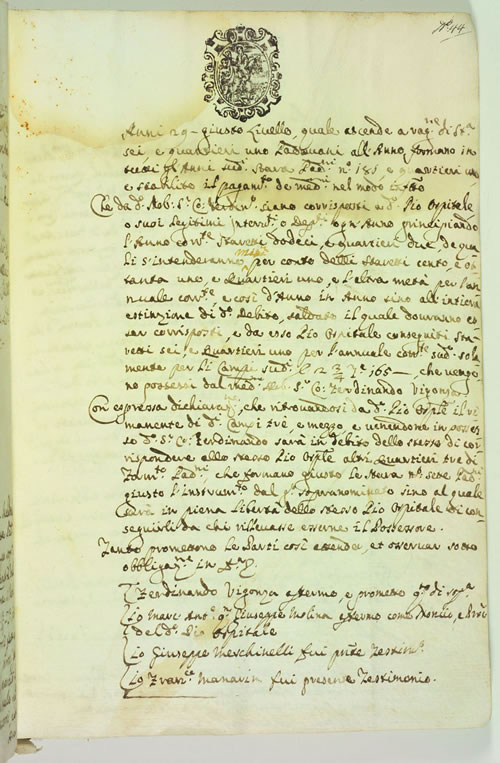 N.º 44
Anni 29 - giusto Livello, quale ascende a rag.e di St.a
sei e quartieri uno Padovani all'Anno formano in
tutti gl'Anni sud.i Stara Pad.ni n.º 181 e quartieri uno
e stabilito il pagam.to de med.i nel modo
Che da d.º Nob. S.r Co: Ferdin.º siano corrisposti a d.º Pio Ospitale
o suoi legitimi Interv.ti o ogn'Anno principiando
l'Anno corr.te Staretti dodeci, e quartieri due, de qua
li s'intenderanno metà per conto delli Staretti cento, e ot
tanta uno, e Quartieri uno, e l'altra metà per l'an
nuale corr.te e così d'Anno in Anno sino all'intiera
estinzione di d.º Debito, saldato il quale dovranno es
ser corrisposti, e da esso Pio Ospitale conseguiti Sta
retti sei, e Quartieri uno per l'annuale corr.te sud.º sola
mente per li Campi sud.i 165 - che vengo
no possessi dal med.º Nob. S.r Co: Ferdinando Vigonza
Con espressa dichiaraz.ne, che ritrovandosi da d.º Pio Osp.le il ri
manente di d.i Campi trè, e mezzo, e venendone in posses
so d.º S.r Co: Ferdinando sarà in debito dello stesso di cor
rispondere allo stesso Pio Osp.le altri Quartieri tre di
Form.to Pad.ni, che formano giusto le Stara n.º sette Pad.ni
giusto l'instrum.to dal sopranominato sino al quale
sarà in piena Libertà dello stesso Pio Ospitale di con
seguirli da chi rilevasse esserne il Possessore.
Tanto promettono le Parti così attender, et osservar sotto
obbligaz.ne in
Ferdinando Vigonza affermo, e prometto q.to di sop.a
Io Marc'Ant.º q.m Giuseppe Molina affermo come
del d.º Pio Ospitale
Io Giuseppe Meschinelli fui pñte Testim.º
Io Fran.co Manarin fui presente Testimonio.